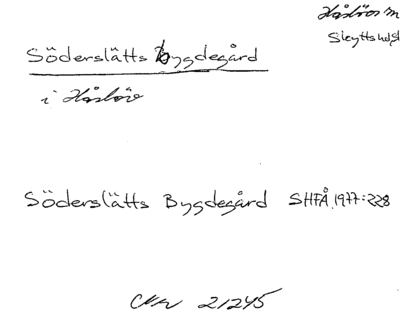 Håslövs m
Skytts hd, Sk
Söderslätts bygdegård
i Håslöv
Söderslätts Bygdegård SHFÅ 1977:228
CMW 21245